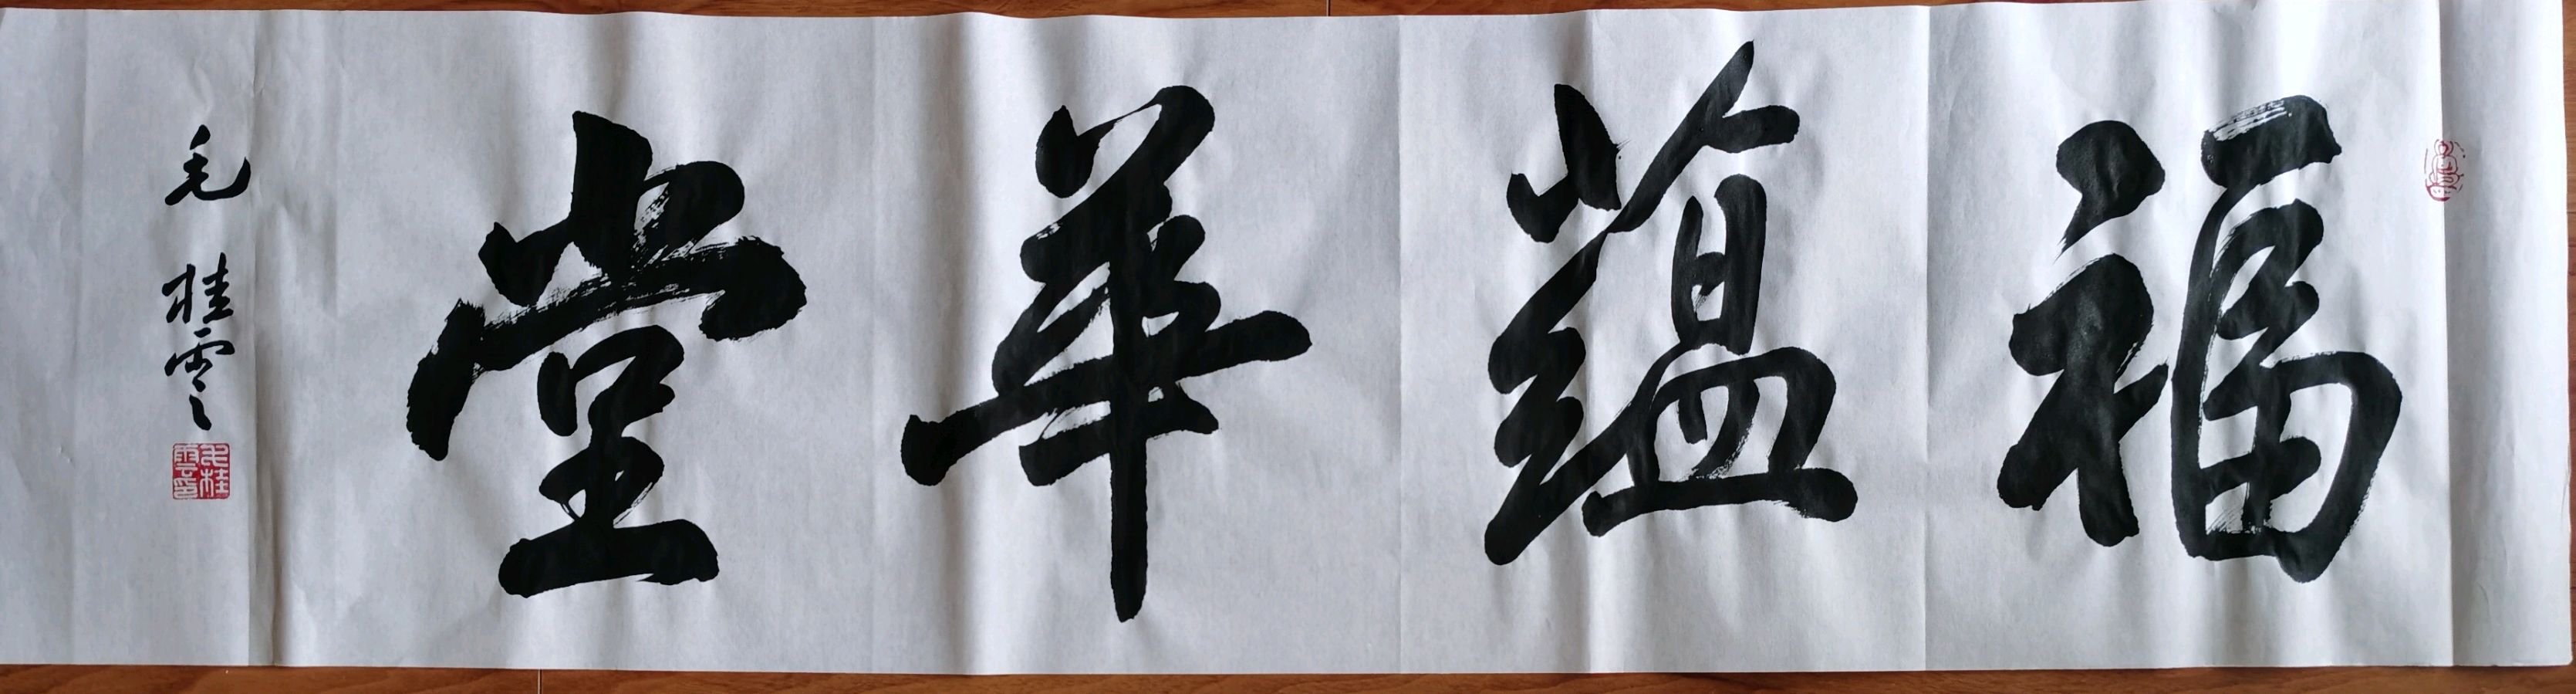 福蘊華堂
毛桂雲
毛桂雲印